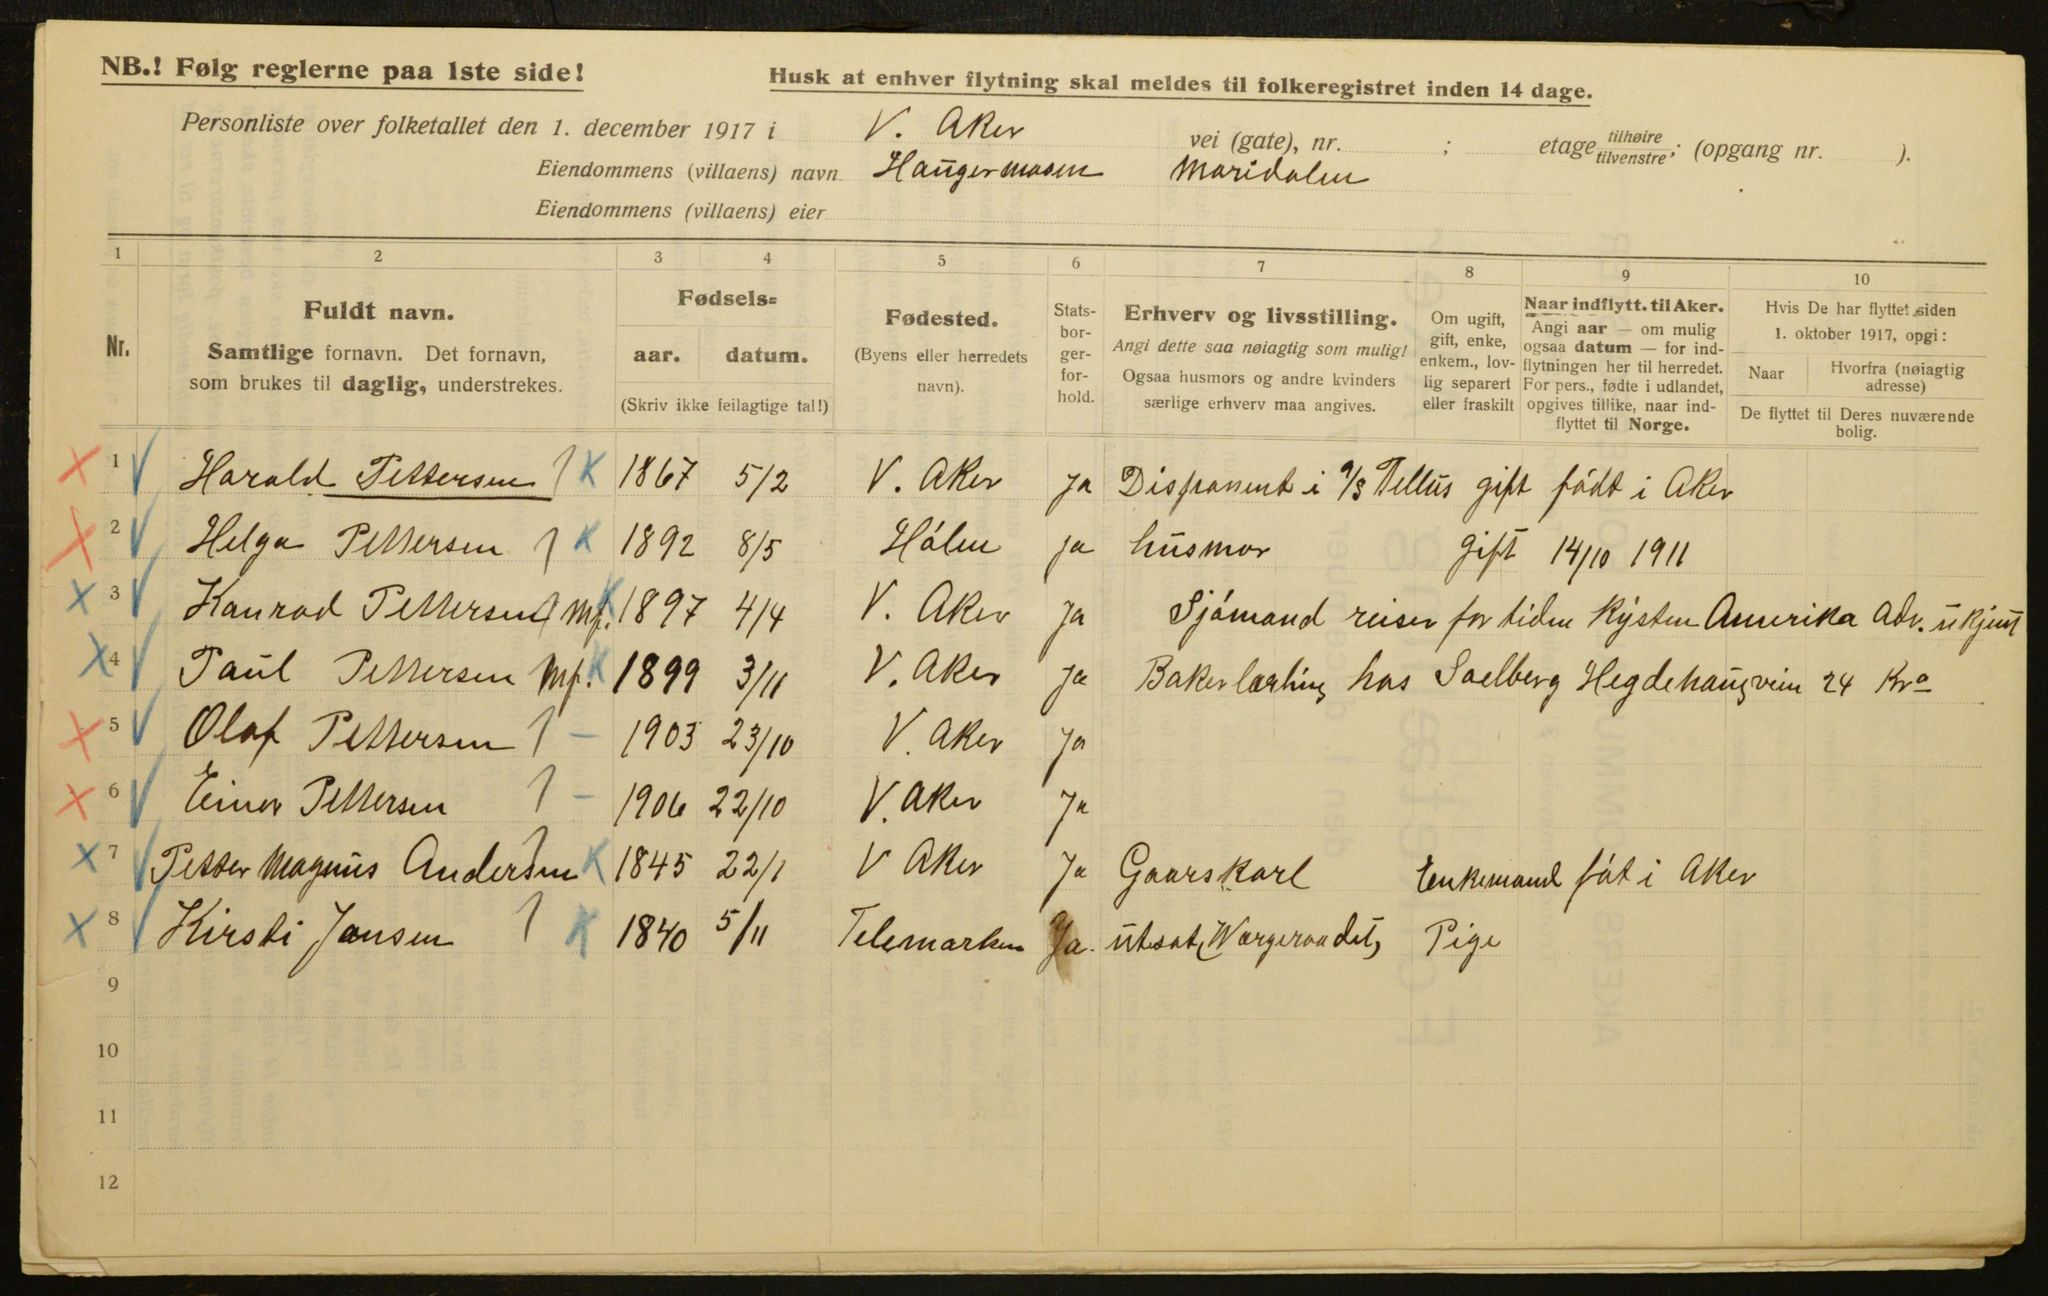 NB.! Følg reglerne paa 1ste side!
Husk at enhver flytning skal meldes til folkeregistret inden 14 dage.
Personliste over folketallet den 1. december 1917 i V. Aker vei (gate), nr. ; etage tilhøire tilvenstre; (opgang nr. ).
Eiendommens (villaens) navn Haugermosen Maridalen
Eiendommens (villaens) eier
1 2 3 4 5 6 7 8 9 10
Nr.
Fuldt navn.
Samtlige fornavn. Det fornavn,
som brukes til daglig, understrekes.
Fødsels=
aar. datum.
(Skriv ikke feilagtige tal!)
Fødested.
(Byens eller herredets
navn).
Stats-
bor-
ger-
for-
hold.
Erhverv og livsstilling.
Angi dette saa nøiagtig som mulig!
Ogsaa husmors og andre kvinders
særlige erhverv maa angives.
Om ugift,
gift, enke,
enkem., lov-
lig separert
eller fraskilt
Naar indflytt. til Aker.
Angi aar — om mulig
ogsaa datum — for ind-
flytningen her til herredet.
For pers., fødte i utlandet,
opgives tillike, naar ind-
flyttet til Norge.
Hvis De har flyttet siden
1. oktober 1917, opgi:
Naar Hvorfra (nøiagtig
adresse)
De flyttet til Deres nuværende
bolig.
1 Harald Pettersen 1 K 1867 5/2 V. Aker Ja Disponent i A/S Tellus gift födt i Aker
2 Helga Pettersen 1 K 1892 8/5 Hólen Ja husmor gift 14/10 1911
3 Konrad Pettersen 1 mp. K 1897 4/4 V. Aker Ja Sjómand reiser for tiden kysten Amerika Adr. ukjent
4 Paul Pettersen mp. K 1899 3/11 V. Aker Ja Bakerlærling hos Saelberg Hegdehaugveien 24 Kra
5 Olaf Pettersen 1 – 1903 23/10 V. Aker Ja
6 Einar Pettersen 1 – 1906 22/10 V. Aker Ja
7 Petter Magnus Andersen 1 K 1845 22/1 V Aker Ja Gaarskarl Enkemand fót i Aker
8 Kirsti Jansen 1 K 1840 5/11 Telemarken Ja. utsat (Wærgeraadet) Pige
9
10
11
12